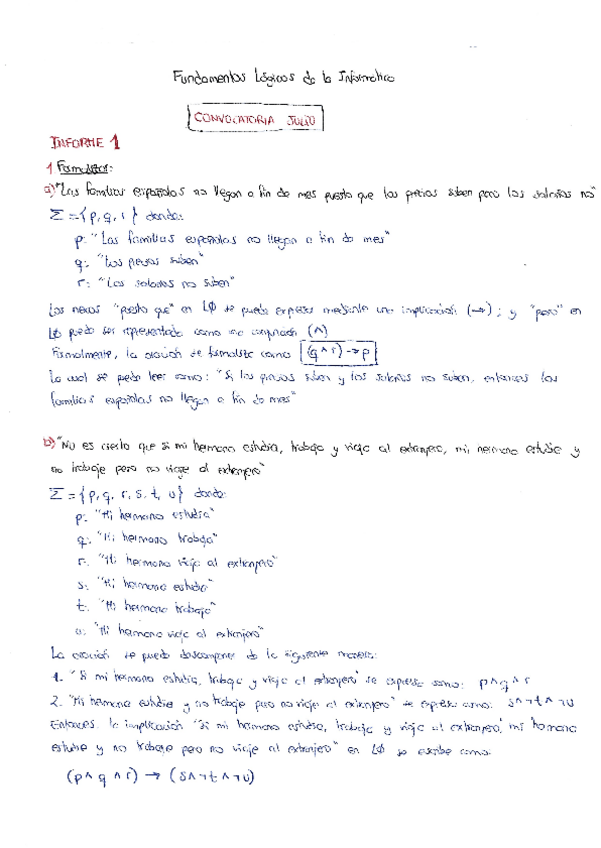 Fundamentos Lógicos de la Informática
CONVOCATORIA JULIO
INFORME 1
1 Formalizar:
a) "Las familias españolas no llegan a fin de mes puesto que los precios suben pero los salarios no"
Σ = {p, q, r} donde:
p: "Las familias españolas no llegan a fin de mes"
q: "Los precios suben"
r: "Los salarios no suben"
Los nexos "puesto que" en LØ se puede expresar mediante una implicación (→); y "pero" en
LØ puede ser representado como una conjunción (∧)
Formalmente, la oración se formaliza como (q ∧ r) → p
Lo cual se puede leer como: "Si los precios suben y los salarios no suben, entonces las
familias españolas no llegan a fin de mes"
b) "No es cierto que si mi hermana estudia, trabaja y viaja al extranjero, mi hermano estudie y
no trabaje pero no viaje al extranjero"
Σ = {p, q, r, s, t, u} donde:
p: "Mi hermana estudia"
q: "Mi hermana trabaja"
r: "Mi hermana viaja al extranjero"
s: "Mi hermano estudia"
t: "Mi hermano trabaja"
u: "Mi hermano viaja al extranjero"
La oración se puede descomponer de la siguiente manera:
1. "Si mi hermana estudia, trabaja y viaja al extranjero" se expresa como: p ∧ q ∧ r
2. "Mi hermano estudie y no trabaje pero no viaje al extranjero" se expresa como: s ∧ ¬t ∧ ¬u
Entonces, la implicación "Si mi hermana estudia, trabaja y viaja al extranjero, mi hermano
estudie y no trabaje pero no viaje al extranjero" en LØ se escribe como:
(p ∧ q ∧ r) → (s ∧ ¬t ∧ ¬u)